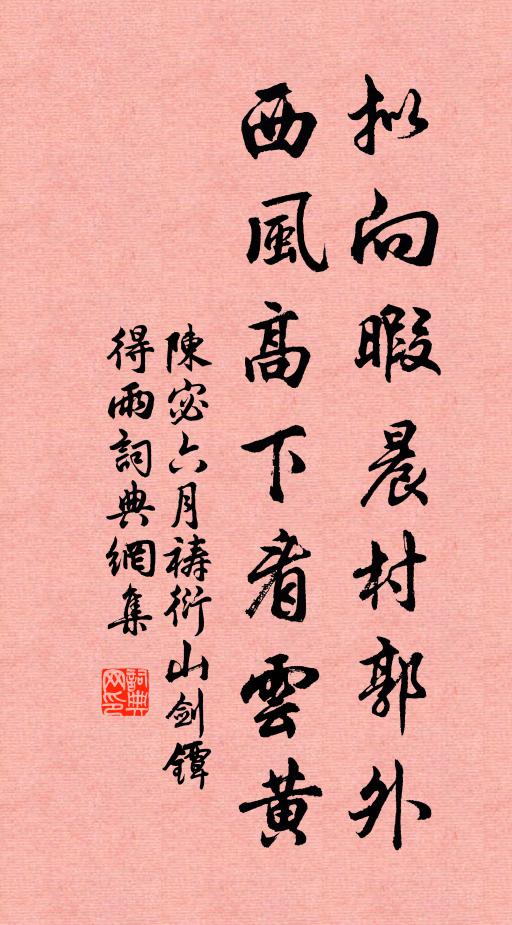 拟向暇晨村郭外
西風高下看雲黃
陳宓六月禱衍山剑鐔
得雨詞典網集
詞典网印